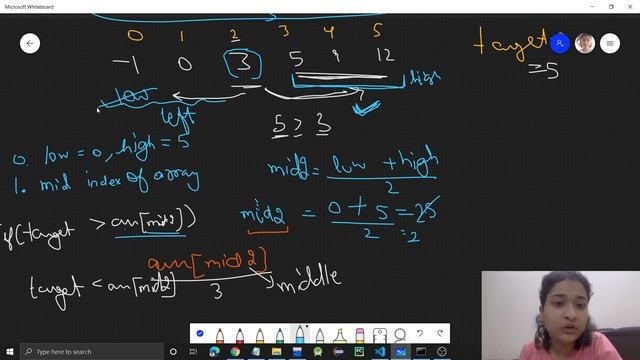 Microsoft Whiteboard
0 1 2 3 4 5
-1 0 3 5 9 12
target
=5
low
high
left
5 > 3
0. low = 0, high = 5
1. mid index of array
mid2 = low + high
2
mid2 = 0 + 5 = 2.5
2
= 2
if(target > arr[mid2])
arr[mid2]
target < arr[mid2]
3
middle
Type here to search